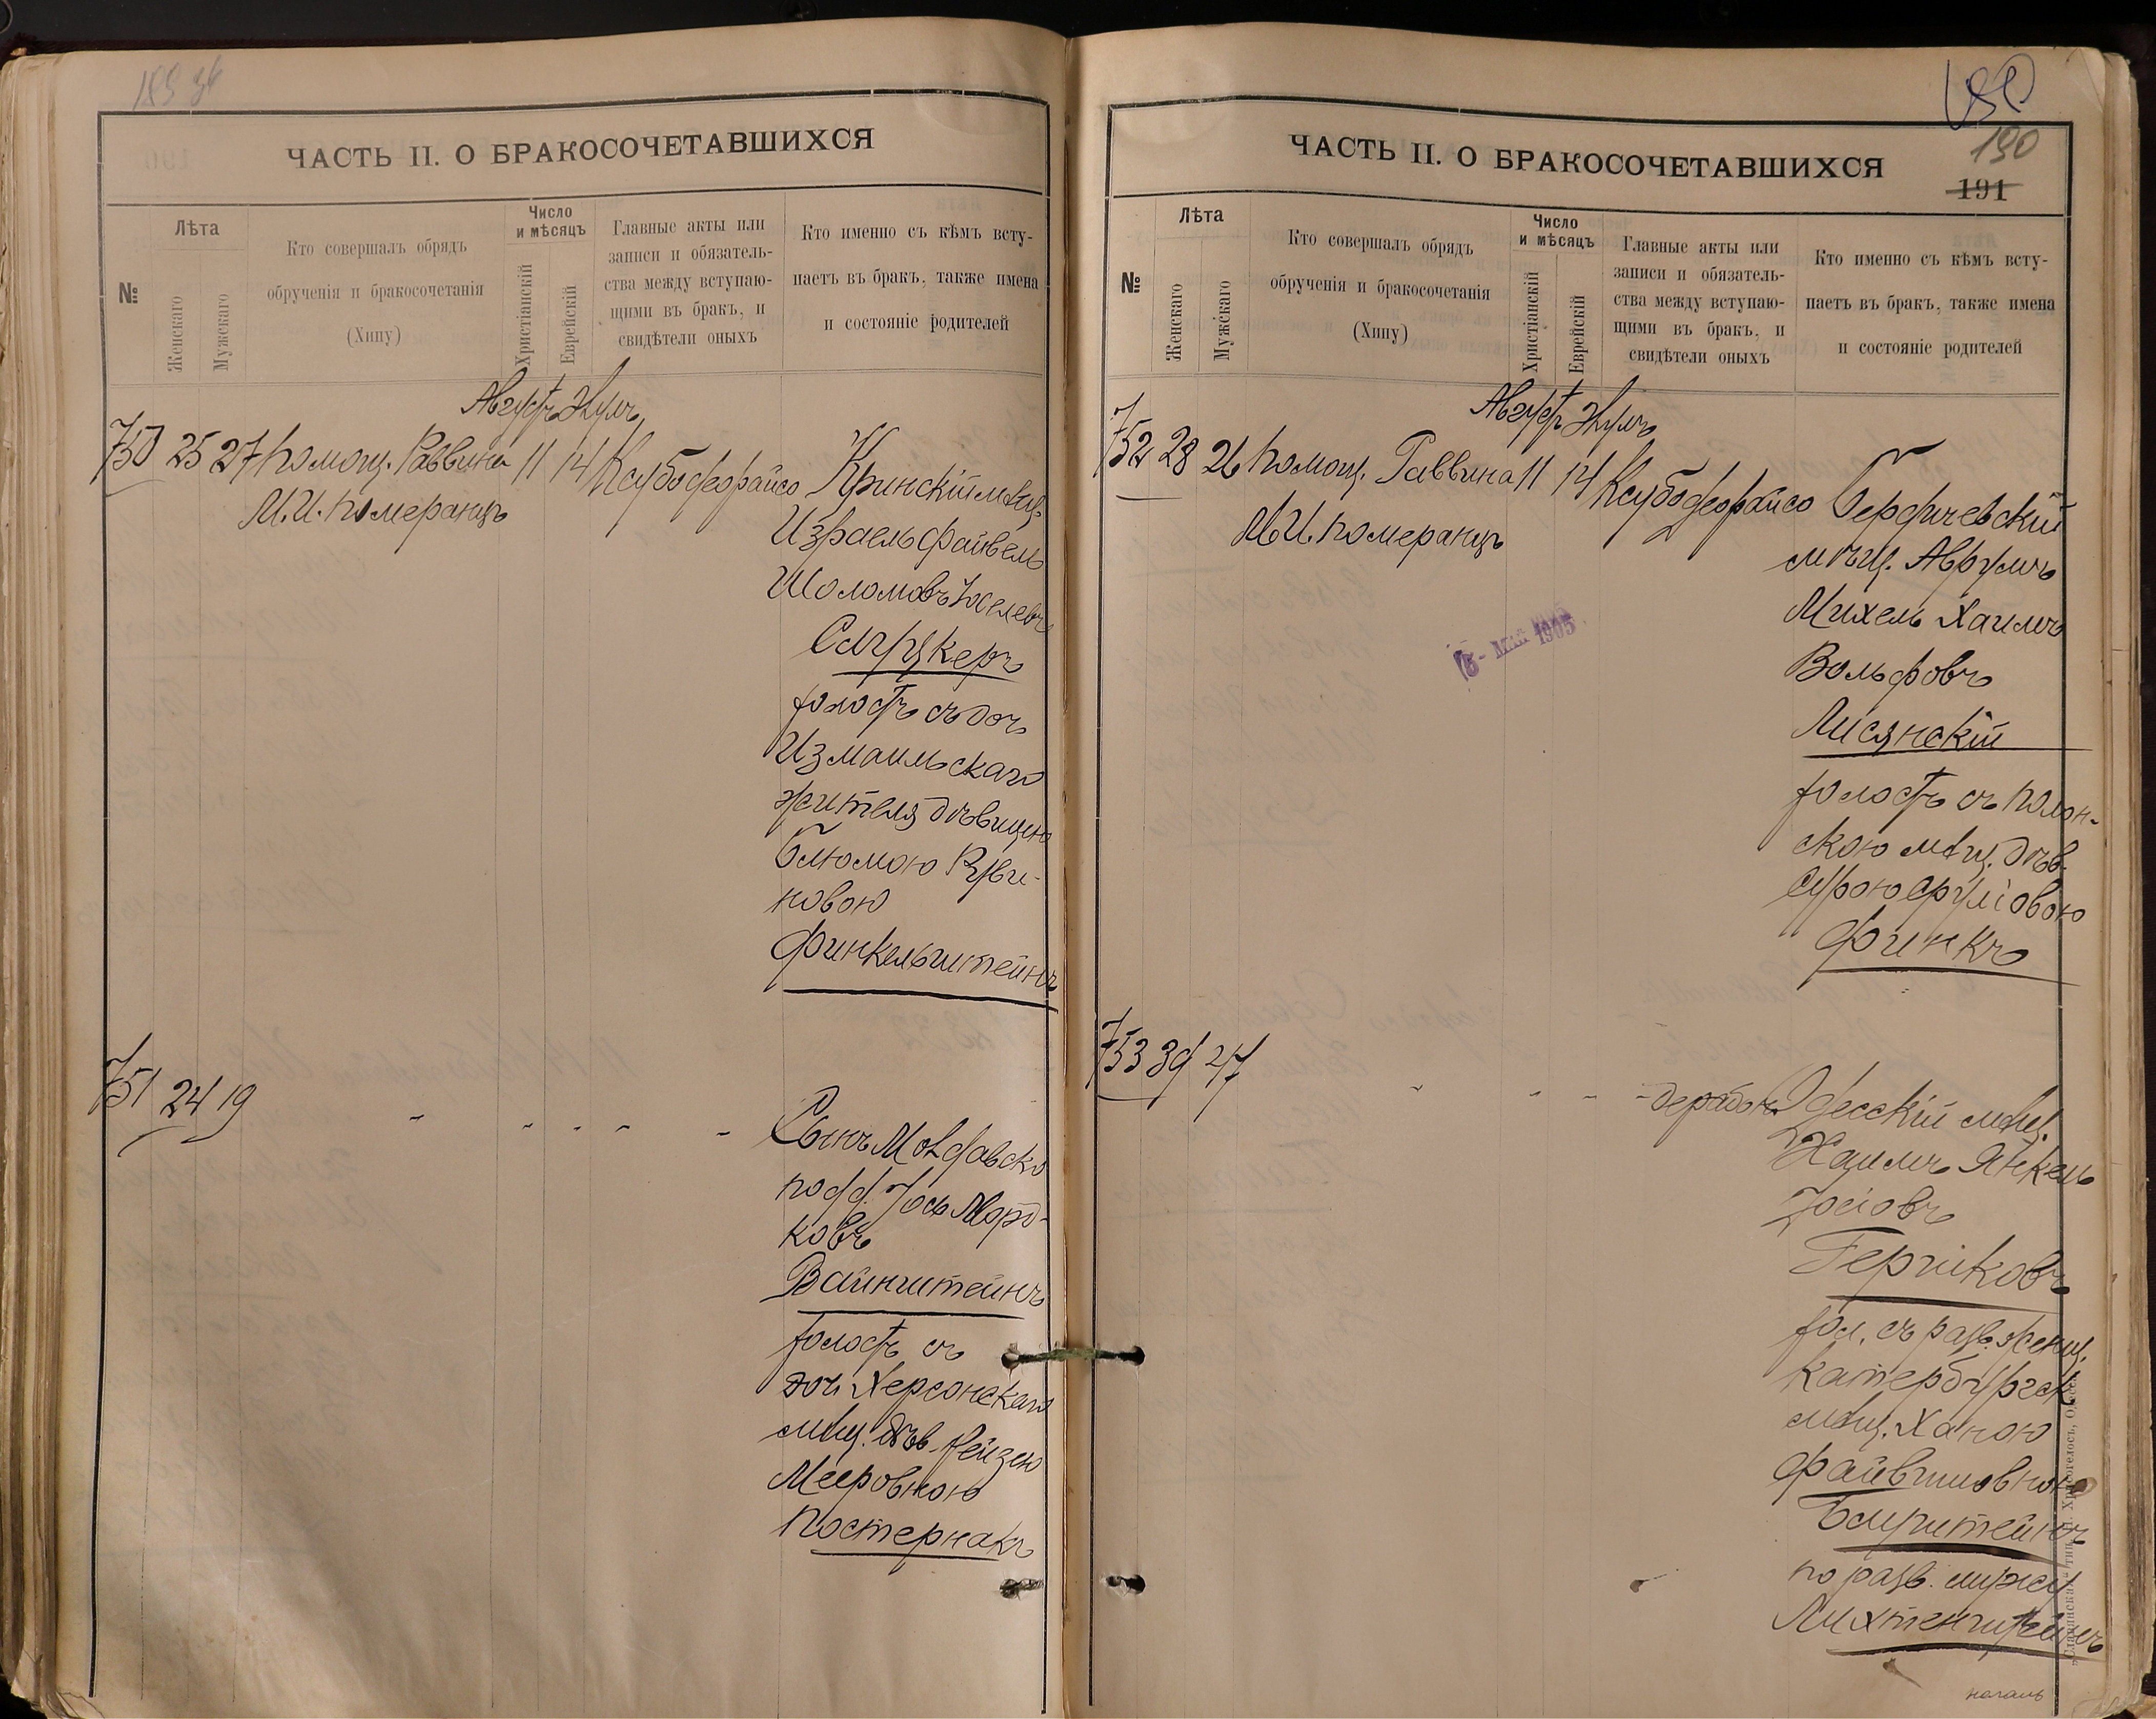 ЧАСТЬ II. О БРАКОСОЧЕТАВШИХСЯ
№
Лѣта
Женскаго
Мужскаго
Кто совершалъ обрядъ
обрученія и бракосочетанія
(Хипу)
Число
и мѣсяцъ
Христіанскій
Еврейскій
Главные акты или
записи и обязатель-
ства между вступаю-
щими въ бракъ, и
свидѣтели оныхъ
Кто именно съ кѣмъ всту-
паетъ въ бракъ, также имена
и состояніе родителей
750 25 27 Помощ. Раввина 11 14 Ксубо
М. И. Померанцъ
Кринскій мѣщ.
Израель Файвель
Шоломовъ Іоселевъ
Слуцкеръ
холостъ съ доч.
Измаильскаго
жителя дѣвицею
Блюмою Руви-
новою
Финкельштейнъ
751 24 19 " " " " "
Сынъ
подд. Іось Морд-
ковъ
Вайнштейнъ
холостъ съ
доч. Херсонскаго
мѣщ. дѣв. Рейзею
Мееровною
Постернакъ
190
ЧАСТЬ II. О БРАКОСОЧЕТАВШИХСЯ
191
№
Лѣта
Женскаго
Мужскаго
Кто совершалъ обрядъ
обрученія и бракосочетанія
(Хипу)
Число
и мѣсяцъ
Христіанскій
Еврейскій
Главные акты или
записи и обязатель-
ства между вступаю-
щими въ бракъ, и
свидѣтели оныхъ
Кто именно съ кѣмъ всту-
паетъ въ бракъ, также имена
и состояніе родителей
752 28 26 Помощ. Раввина 11 14 Ксубо
М. И. Померанцъ
МАЙ 1905
Бердичевскій
мѣщ. Аврумъ
Михель Хаимъ
Вольфовъ
Лисянскій
холостъ съ Полон-
скою мѣщ. дѣв.
Сурою Сруліовою
Финкъ
753 39 47 " " " "
Одесскій мѣщ.
Хаимъ Янкель
Іосіовъ
Гершковъ
хол. съ разв. женщ.
Катербургск.
мѣщ. Ханою
Файвишовною
по разв. мужу
Лихтенштейнъ